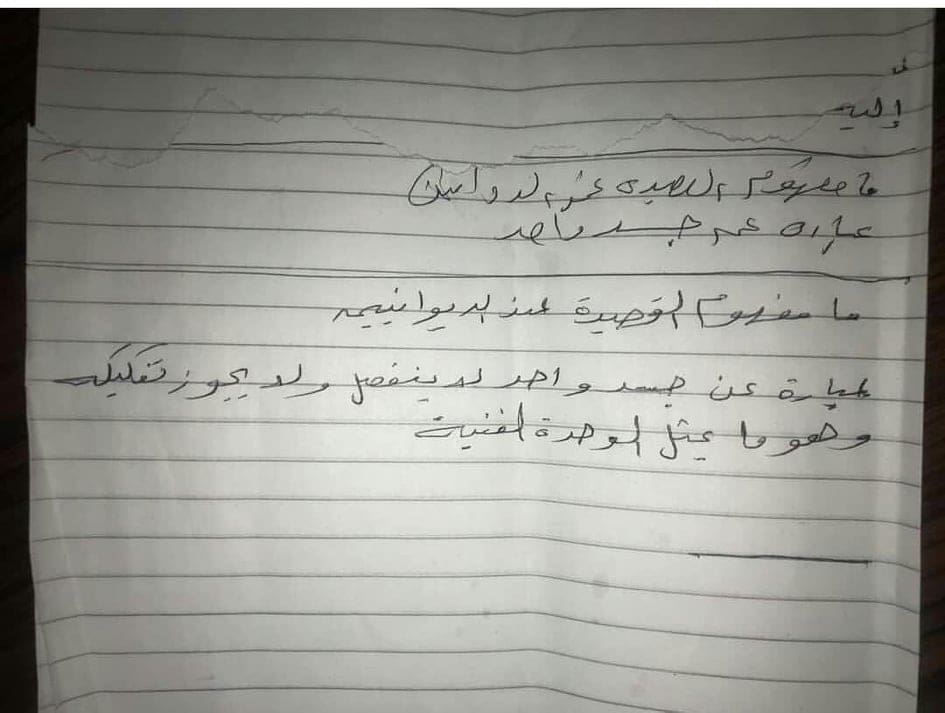 إليه
ما مفهوم القصيدة عند الديوانيين
عبارة عن جسد واحد
ما مفهوم القصيدة عند الديوانيين
عبارة عن جسد واحد لا ينفصل ولا يجوز تفكيكه
وهو ما يمثل الوحدة الفنية